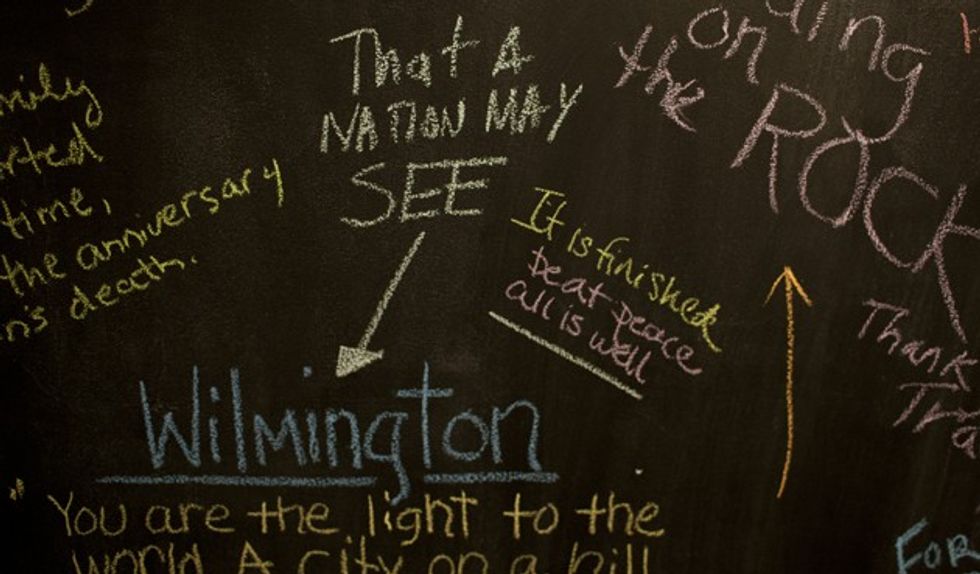 the anniversary
death.
time,
That A
NATION MAY
SEE
on
the
ROCK
It is finished
beat peace
all is well
Thank
Wilmington
"You are the light to the
world A city on a hill
For